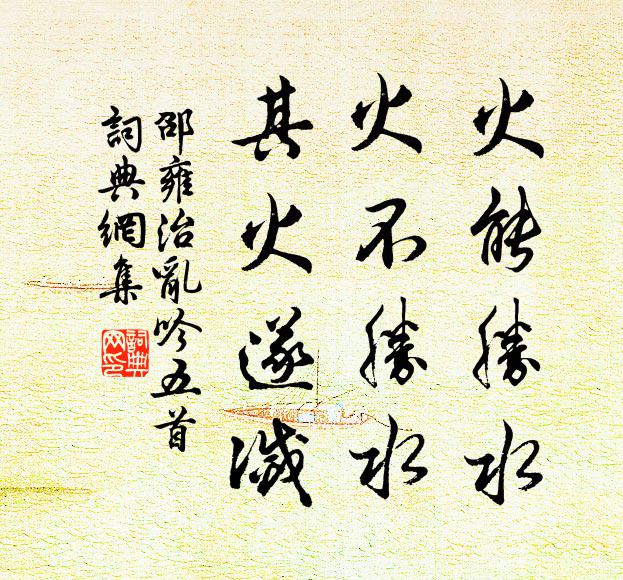 火能勝水
火不勝水
其火遂滅
邵雍治亂吟五首
詞典網集
詞典网印